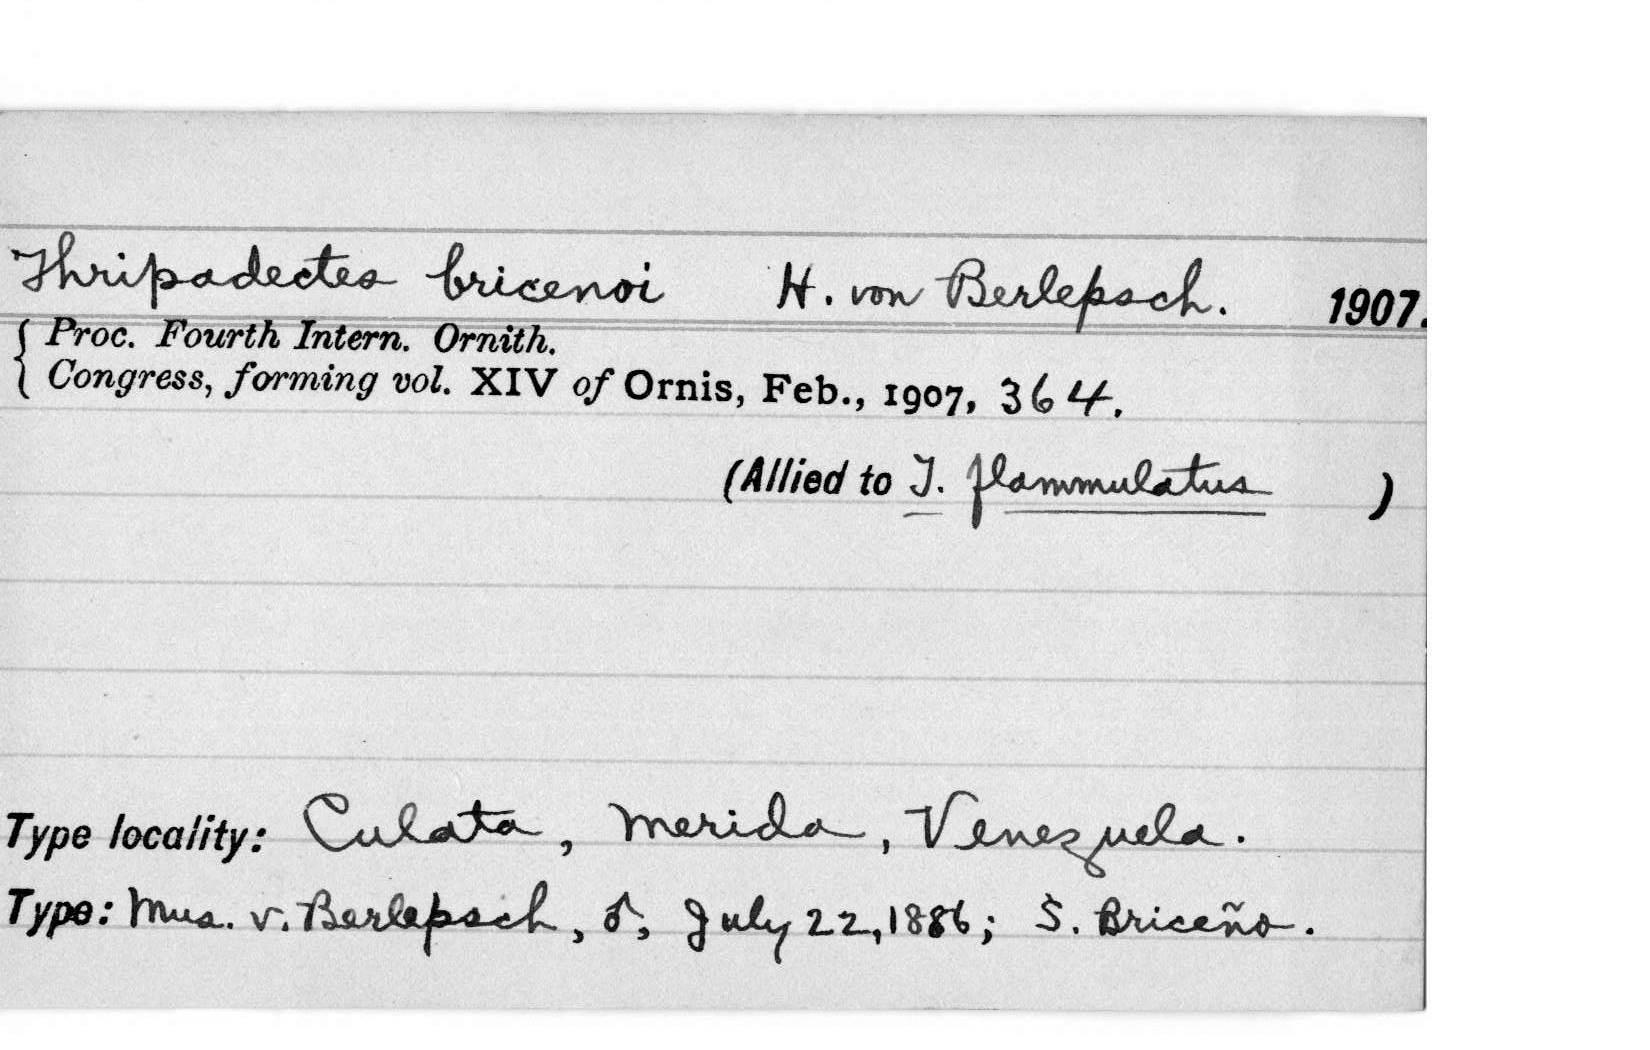 Thripadectes bricenoi H. von Berlepsch. 1907.
{ Proc. Fourth Intern. Ornith.
Congress, forming vol. XIV of Ornis, Feb., 1907, 364.
(Allied to T. flammulatus )
Type locality: Culata, Merida, Venezuela.
Type: Mus. v. Berlepsch, ♂, July 22, 1886; S. Briceño.